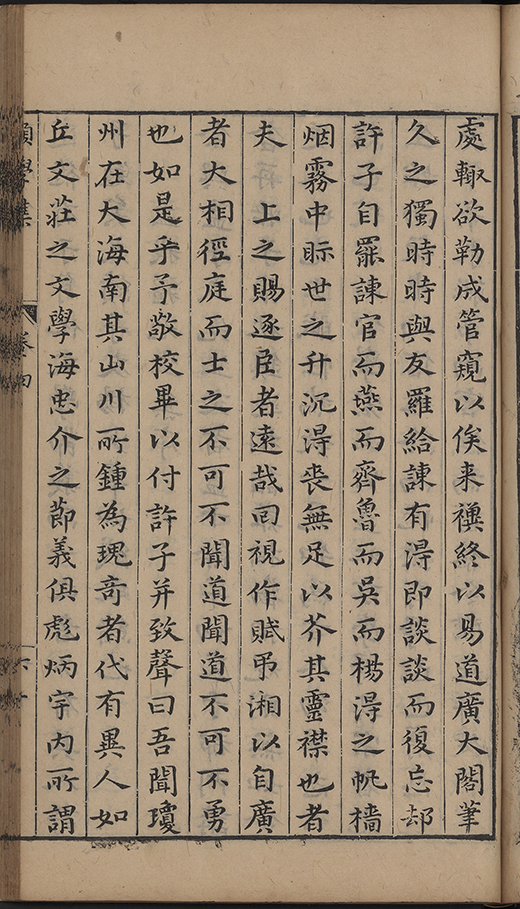 處輙欲勒成管窺以俟来禩終以易道廣大閣筆
久之獨時時與友羅給諫有淂即談談而復忘却
許子自罷諫官而燕而齊魯而吳而楊淂之帆檣
烟霧中眎世之升沉淂丧無足以芥其靈襟也者
夫　上之賜逐臣者遠哉囘視作賦弔湘以自廣
者大相徑庭而士之不可不聞道聞道不可不勇
也如是乎予敬校畢以付許子并致聲曰吾聞瓊
州在大海南其山川所鍾為瑰奇者代有異人如
丘文莊之文學海忠介之莭義俱彪炳宇内所謂
學集
卷四
六十